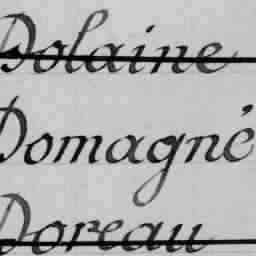 Dolaine
Domagné
Doreau